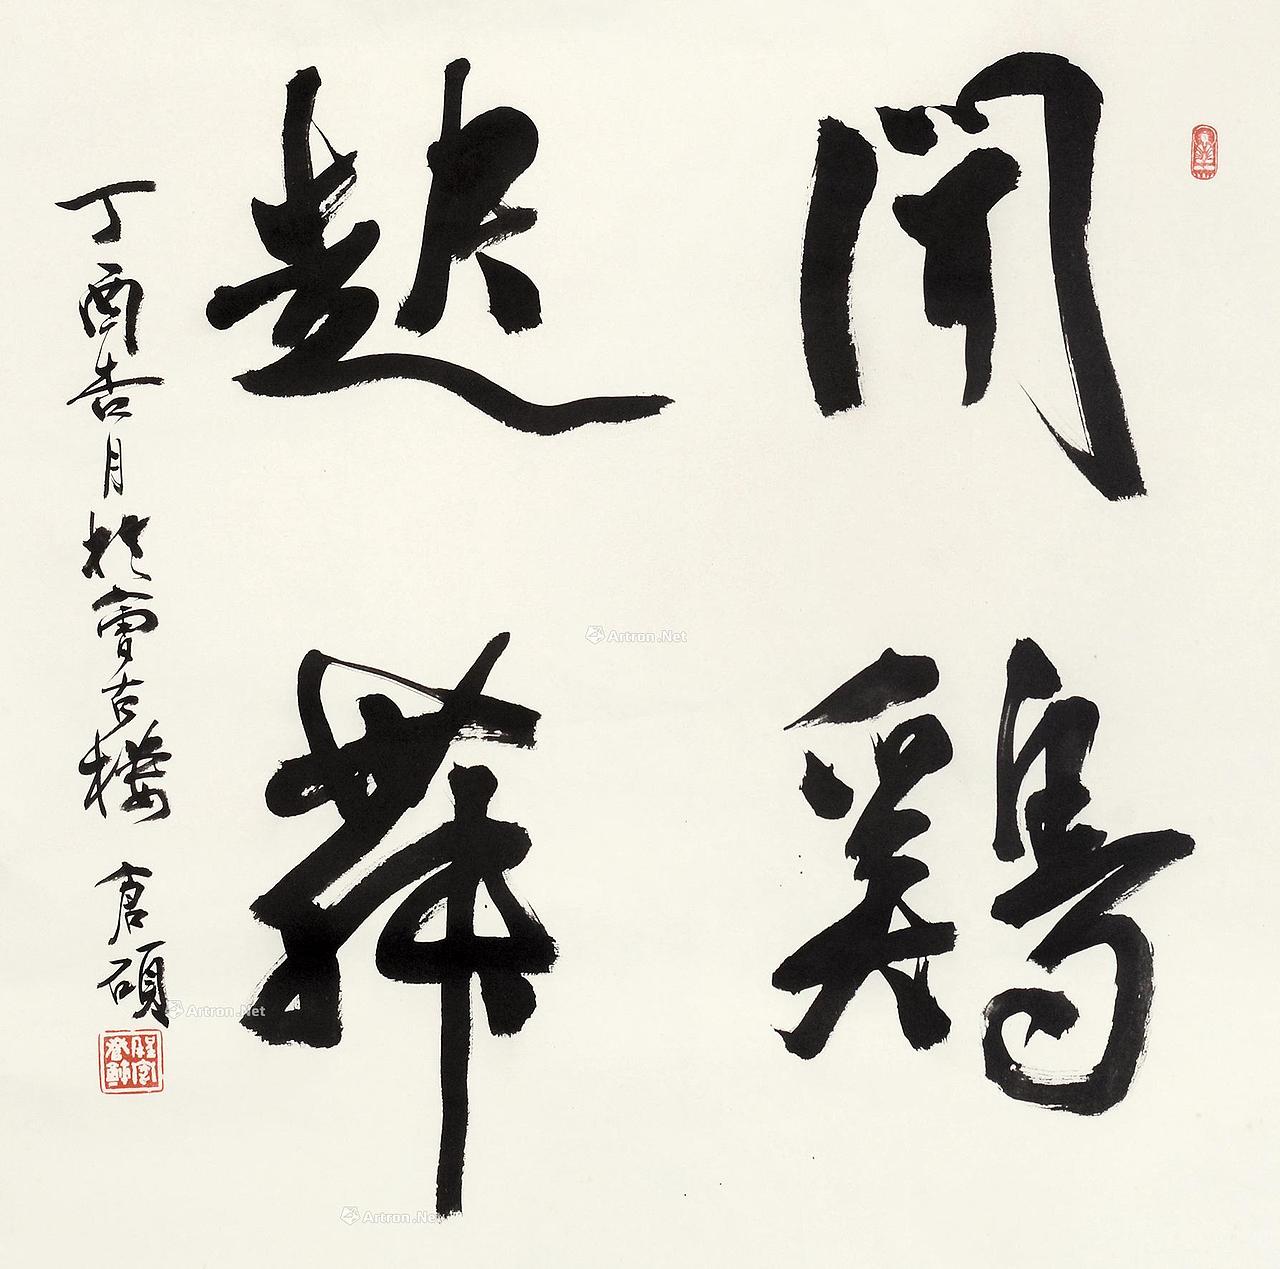 聞鷄
起舞
丁酉杏月於古樓 倉碩
Artron.Net
Artron.Net
Artron.Net